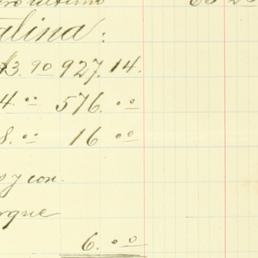 alina:
3.90 927.14.
4.00 576.00
8.00 16.00
y con.
rque
6.00